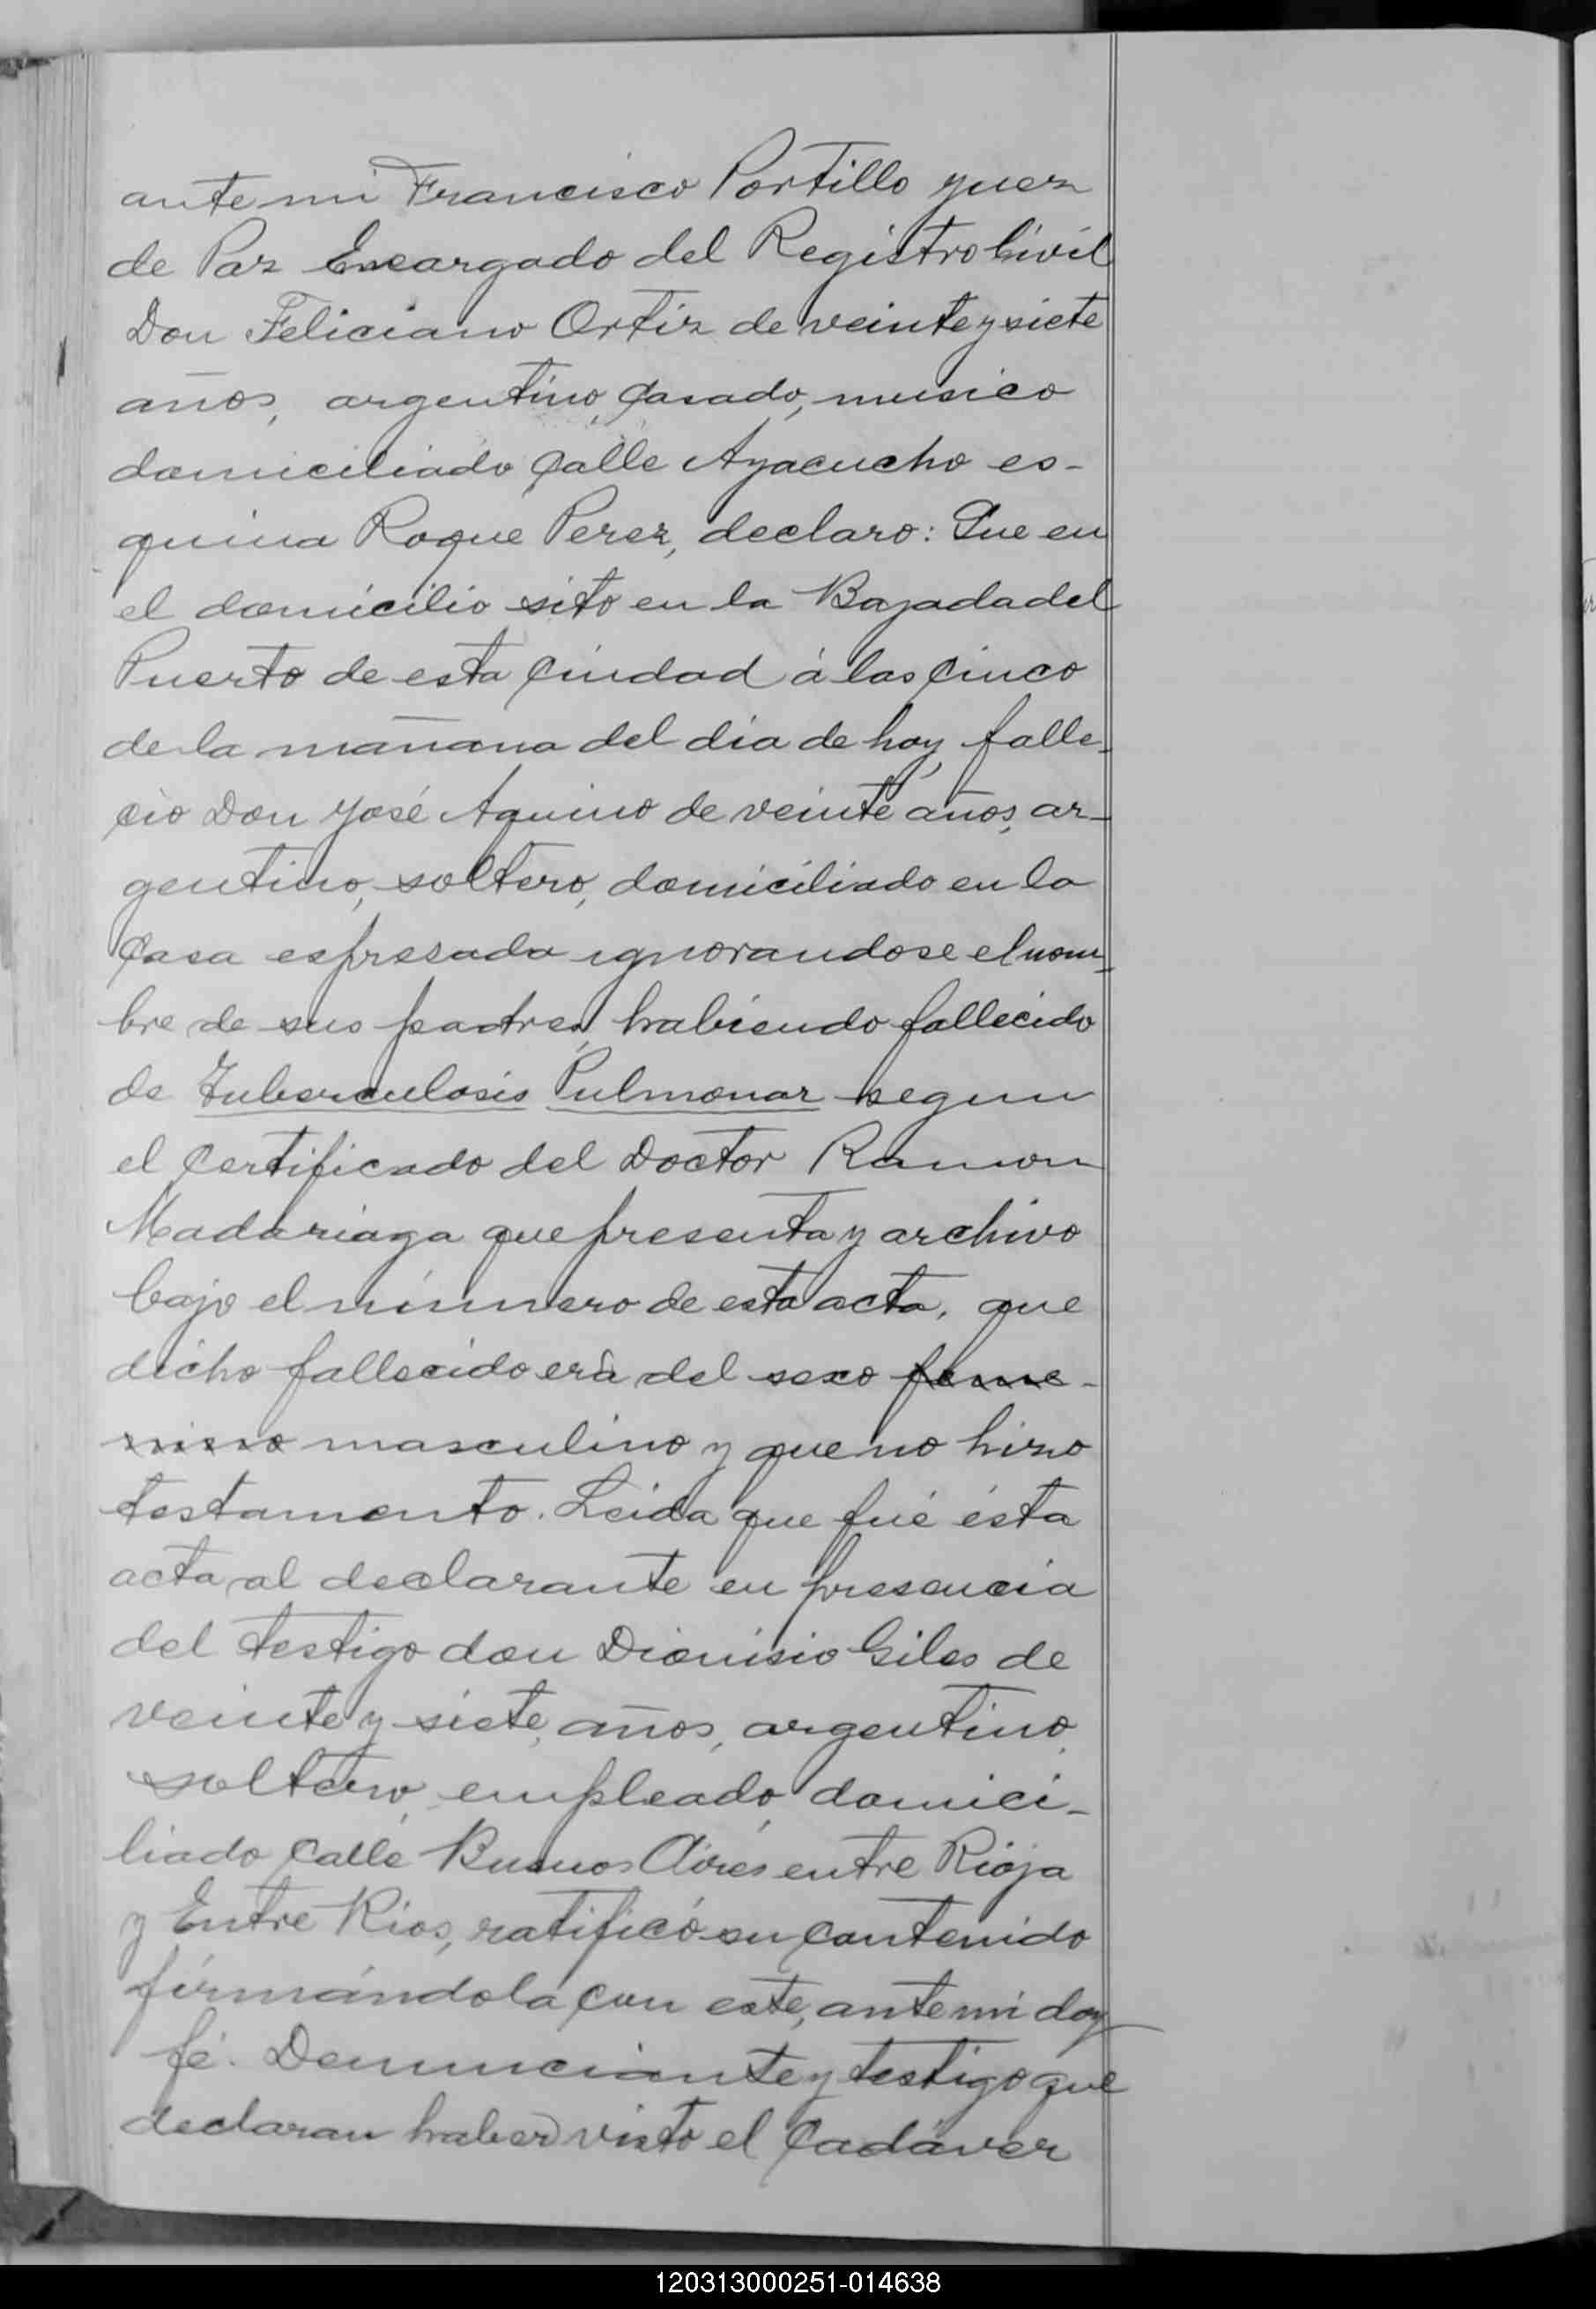 ante mi Francisco Portillo Juez
de Paz Encargado del Registro Civil
Don Feliciano Ortiz de veinte y siete
años, argentino, casado, musico
domiciliado calle Ayacucho es-
quina Roque Perez, declaro: Que en
el domicilio sito en la Bajada del
Puerto de esta ciudad á las cinco
de la mañana del dia de hoy, falle-
cio Don José Aquino de veinte años, ar-
gentino, soltero, domiciliado en la
casa espresada ignorandose el nom-
bre de sus padres, habiendo fallecido
de Tuberculosis Pulmonar segun
el certificado del Doctor Ramon
Madariaga que presenta y archivo
bajo el número de esta acta, que
dicho fallecido era del sexo feme-
nino masculino y que no hizo
testamento. Leida que fué ésta
acta al declarante en presencia
del testigo don Dionisio Giles de
veinte y siete, años, argentino,
soltero, empleado, domici-
liado calle Buenos Aires entre Rioja
y Entre Rios, ratificó su contenido
firmándola con este, ante mi doy
fé. Denunciante y testigo que
declaran haber visto el cadáver
120313000251-014638